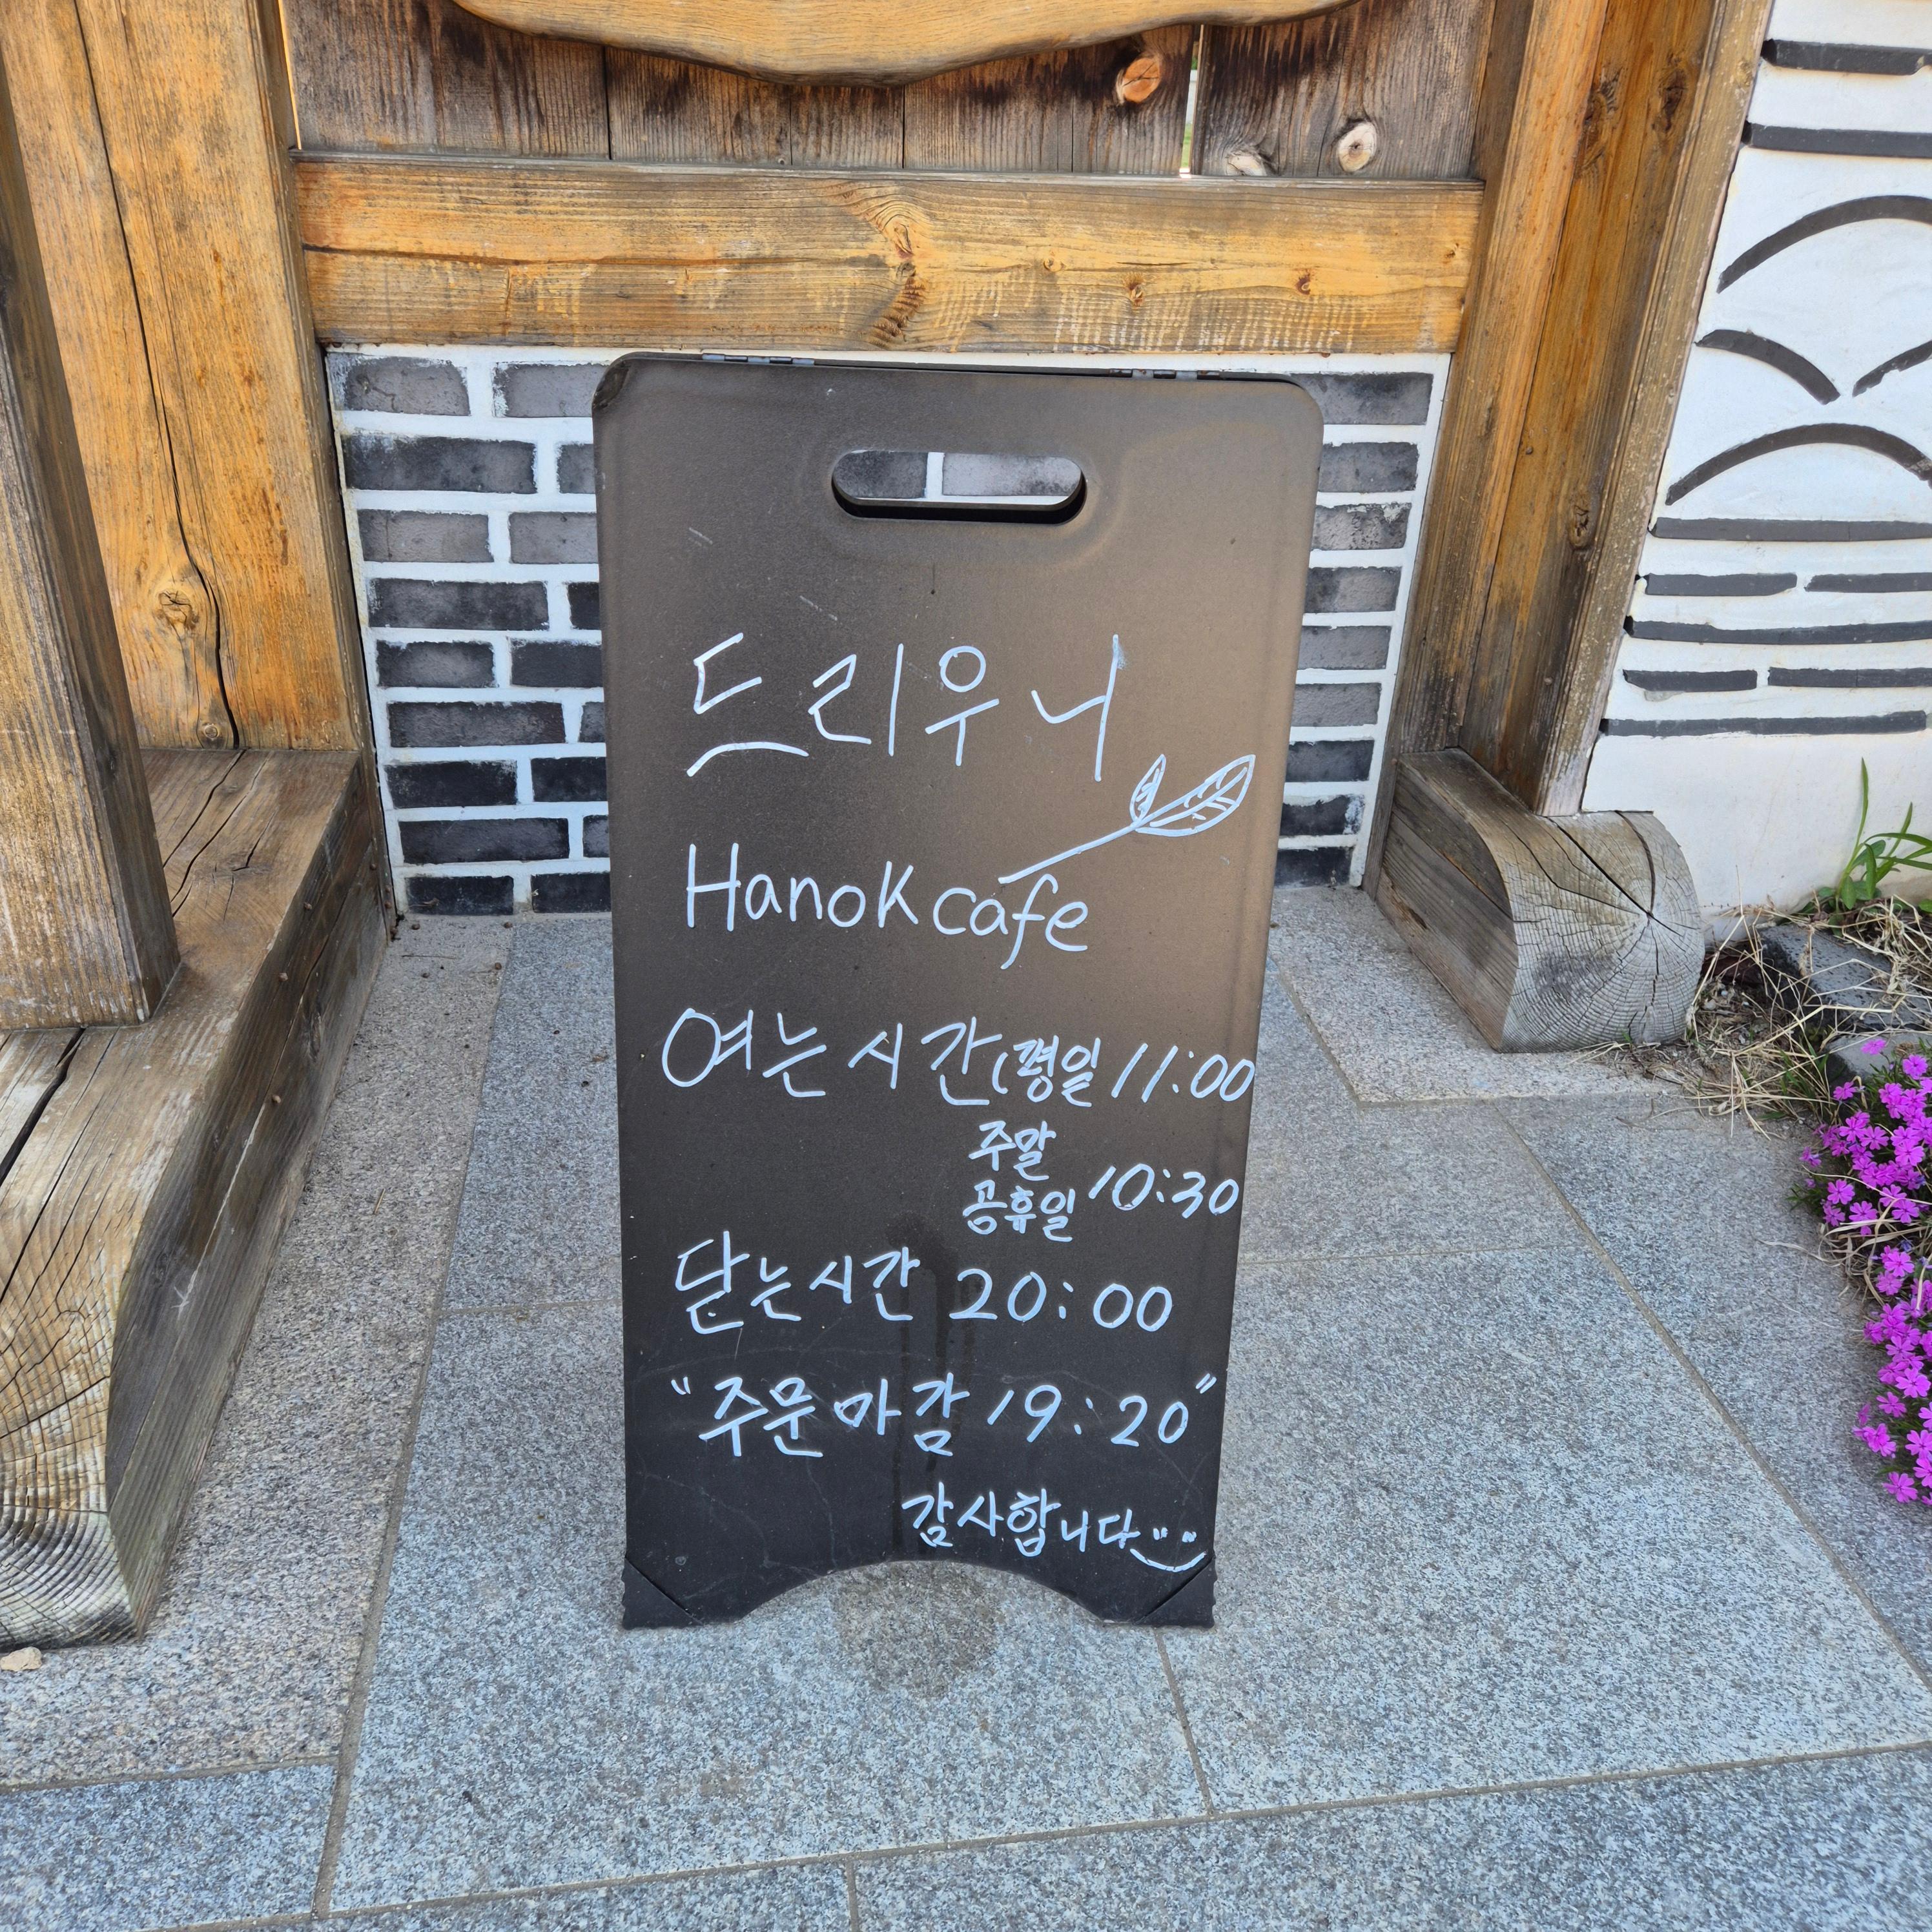 드리우니
Hanok cafe
여는시간(평일 11:00
주말
공휴일 10:30
닫는시간 20:00
"주문마감 19:20"
감사합니다